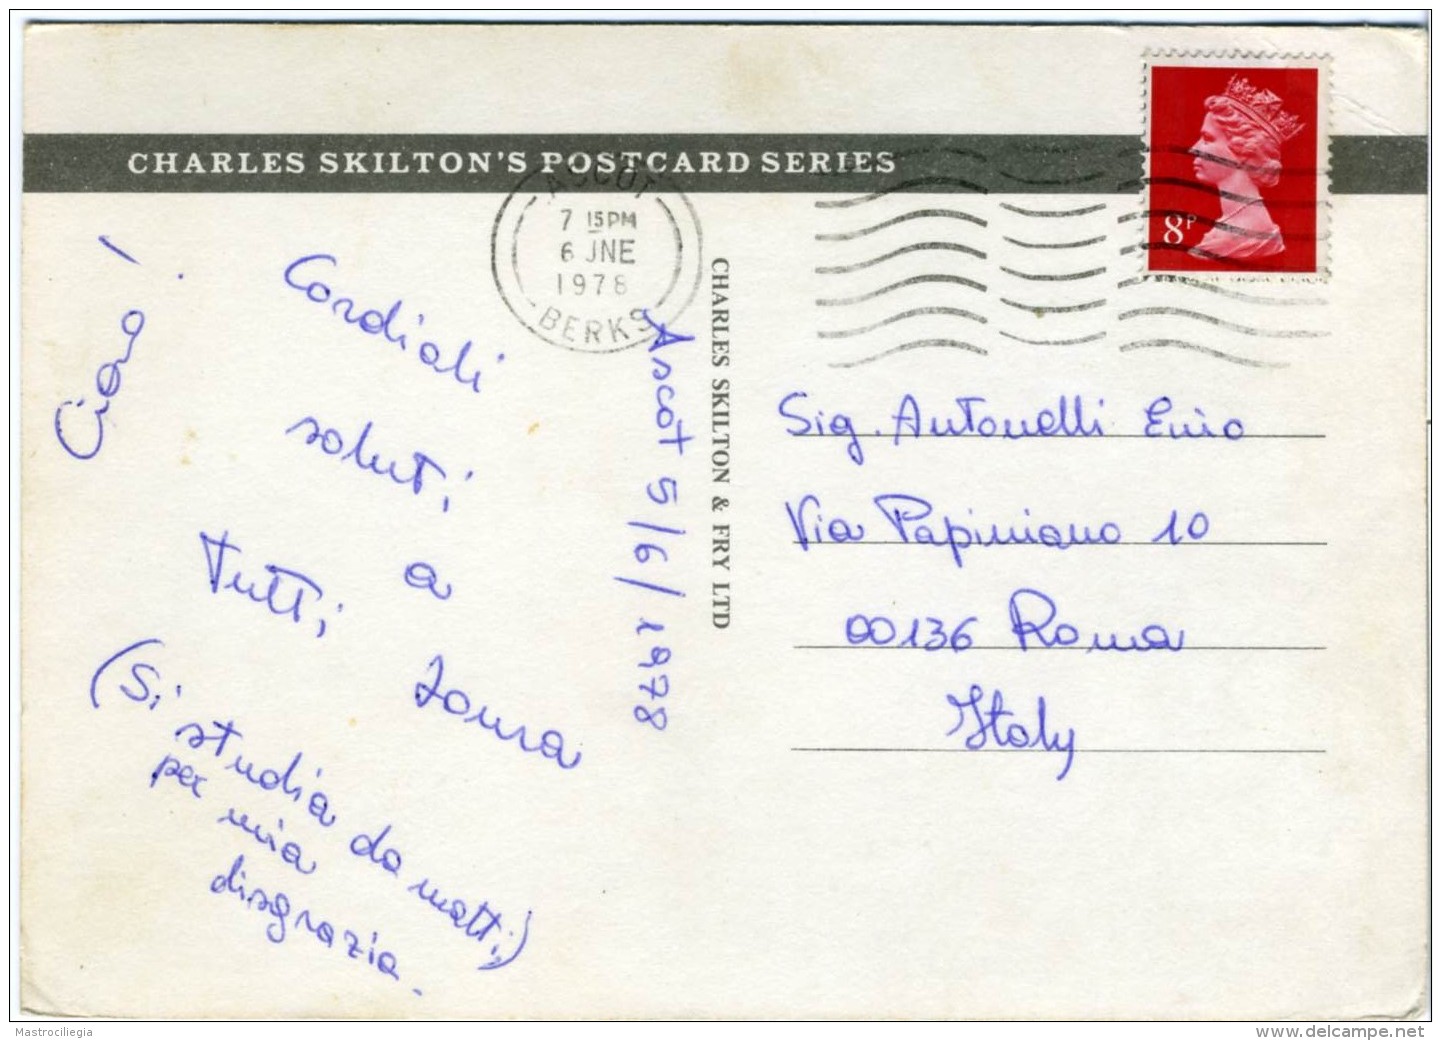 CHARLES SKILTON'S POSTCARD SERIES
ASCOT
7 15PM
6 JNE
1978
BERKS
8P
Ciao!
Cordiali
saluti
a
tutti,
(Si studia da matti,)
per mia
disgrazia.
Ascot 5/6/1978
CHARLES SKILTON & FRY LTD
Sig. Antonelli Enio
Via Papiniano 10
00136 Roma
Italy
Mastrociliegia
www.delcampe.net